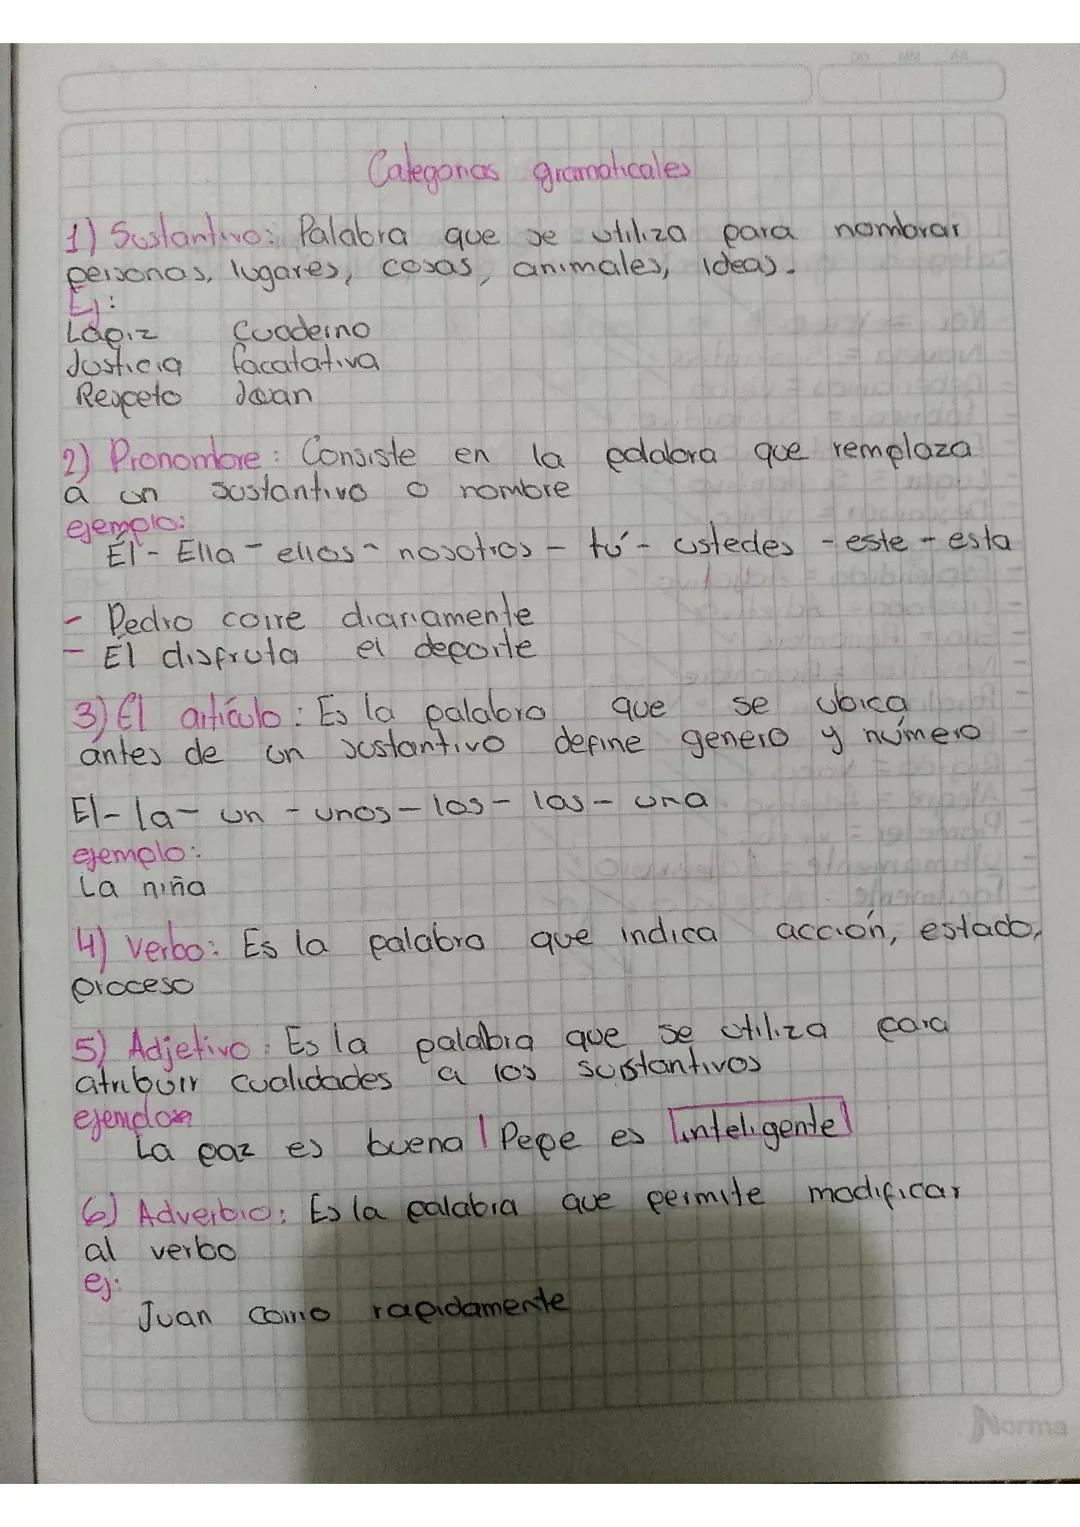 Categorias gramaticales
1) Sustantivo: Palabra que se utiliza para nombrar
personas, lugares, cosas, animales, ideas.
Ej:
Lápiz Cuaderno
Justicia facatativa
Respeto Joan
2) Pronombre: Consiste en la palabra que remplaza
a un sustantivo o nombre
ejemplo:
Él - Ella - ellos - nosotros - tú - ustedes - este - esta
- Pedro corre diariamente
- Él disfruta el deporte
3) El artículo: Es la palabra que se ubica
antes de un sustantivo define genero y número
El - la - un - unos - los - las - una
ejemplo:
La niña
4) Verbo: Es la palabra que indica acción, estado,
proceso
5) Adjetivo: Es la palabra que se utiliza para
atribuir cualidades a los sustantivos
ejemplos
La paz es buena | Pepe es inteligente
6) Adverbio: Es la palabra que permite modificar
al verbo
ej:
Juan como rapidamente
Norma